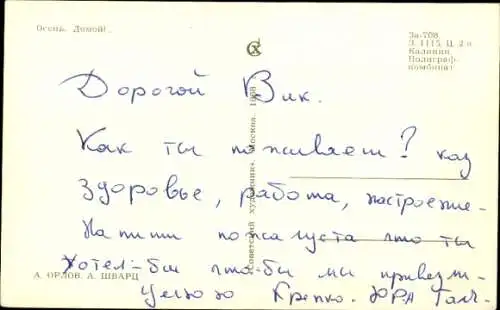 Осень. Домой!
За-708
З. 1115, Ц. 2 к
Калинин
Полиграф-
комбинат
Дорогой Вик.
Как ты поживаеш? как
здоровье, работа, настроение-
Напиши пожалуста что ты
хотел-бы что-бы мы привезли-
Целую Крепко. ЮРА Гал-
А. ОРЛОВ. А. ШВАРЦ
«Советский художник». Москва. 1968